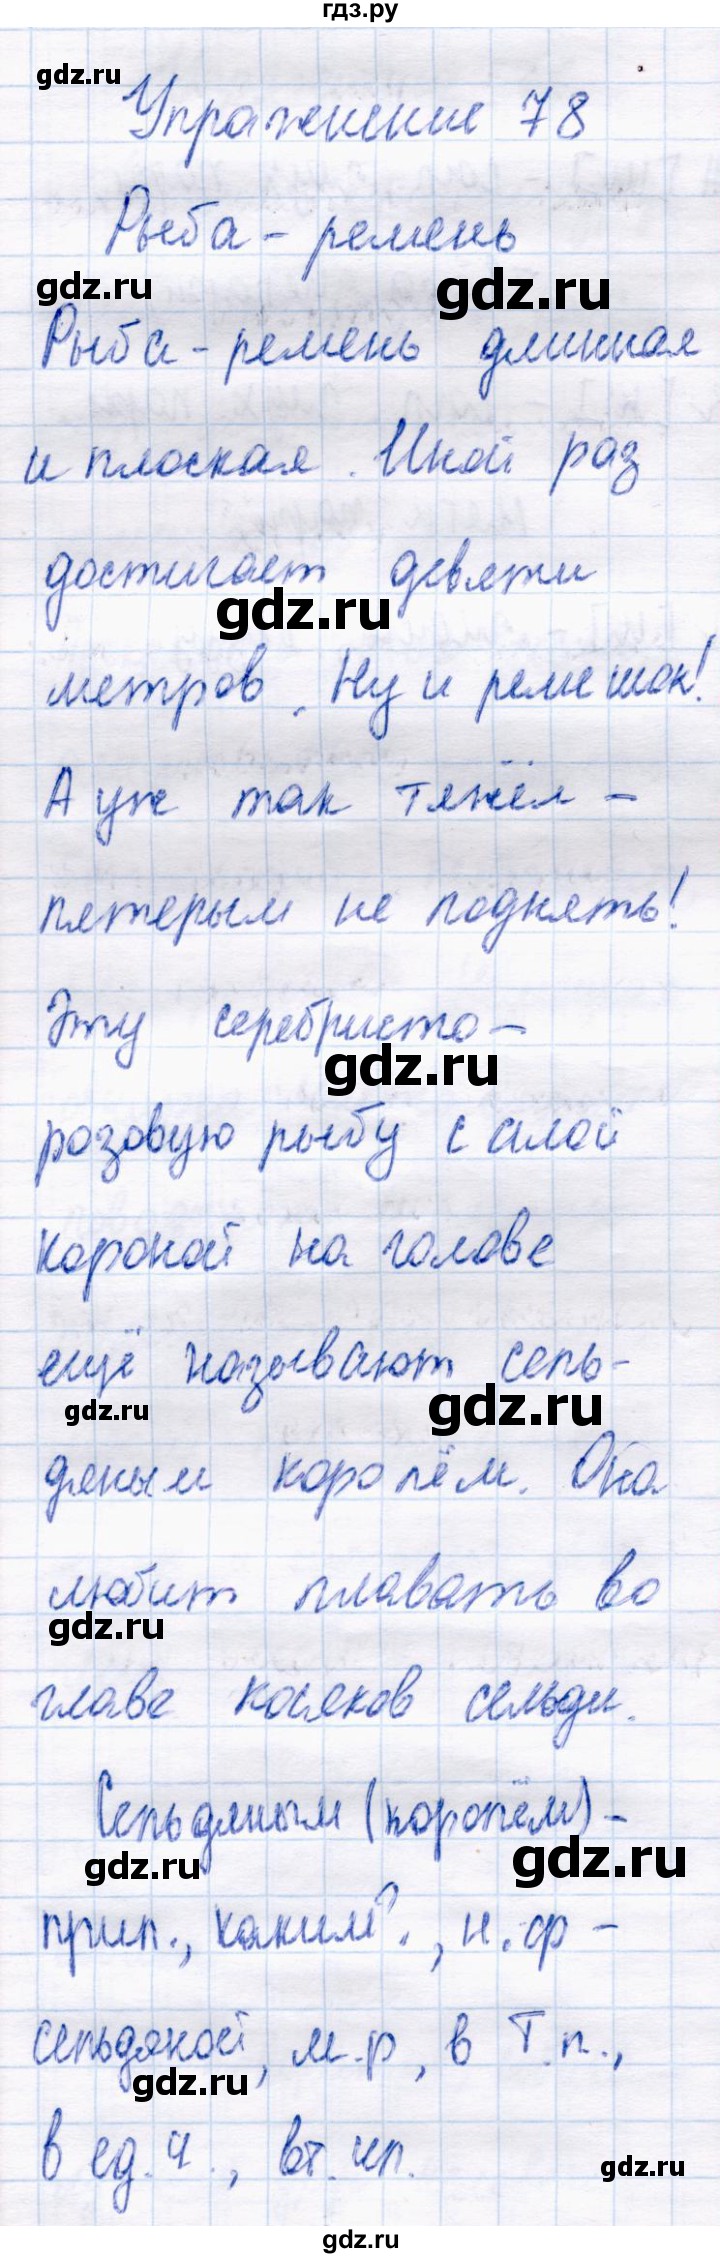 гдз.ру
gdz.ru
Упражнение 78
Рыба - ремень
gdz.ru
gdz.ru
Рыба - ремень длинная
и плоская. Иной раз
достигает девяти
gdz.ru
метров. Ну и ремешок!
А уж так тяжёл -
пятерым не поднять!
Эту серебристо-
gdz.ru
розовую рыбу с алой
короной на голове
ещё называют сель-
gdz.ru
gdz.ru
дяным королём. Она
любит плавать во
gdz.ru
главе косяков сельди.
Сельдяным (королём) -
gdz.ru
gdz.ru
прил., каким?., н.ф -
сельдяной, м.р, в Т.п.,
gdz.ru
в ед.ч., вт. ип.
gdz.ru
gdz.ru